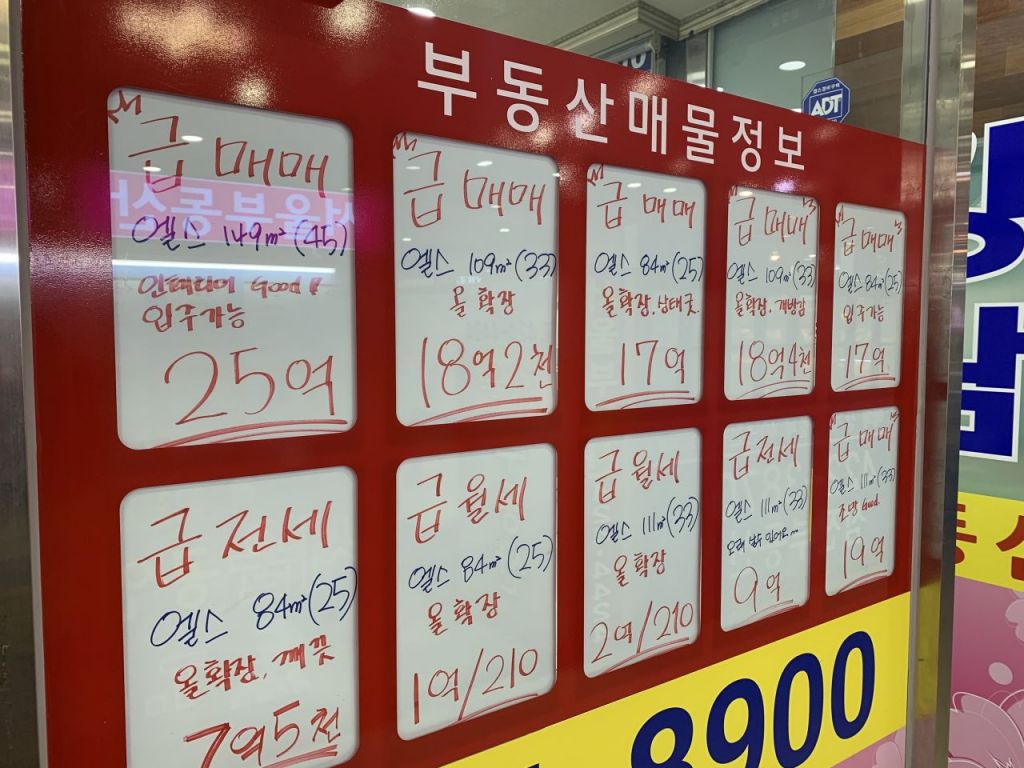 부동산매물정보
ADT
급 매매
엘스 149㎡(45)
인테리어 Good!
입주가능
25억
급 매매
엘스 109㎡(33)
올확장
18억2천
급 매매
엘스 84㎡(25)
올확장, 상태굿.
17억
급 매매
엘스 109㎡(33)
올확장.
18억4천
급 매매
엘스 84㎡(25)
입주가능
17억
급전세
엘스 84㎡(25)
올확장, 깨끗
7억5천
급월세
엘스 84㎡(25)
올확장
1억/210
급월세
엘스 111㎡(33)
올확장
2억/210
급전세
엘스 111㎡(33)
오래 살수 있어요~
9억
급매매
엘스 111㎡(33)
조망 Good.
19억
8900